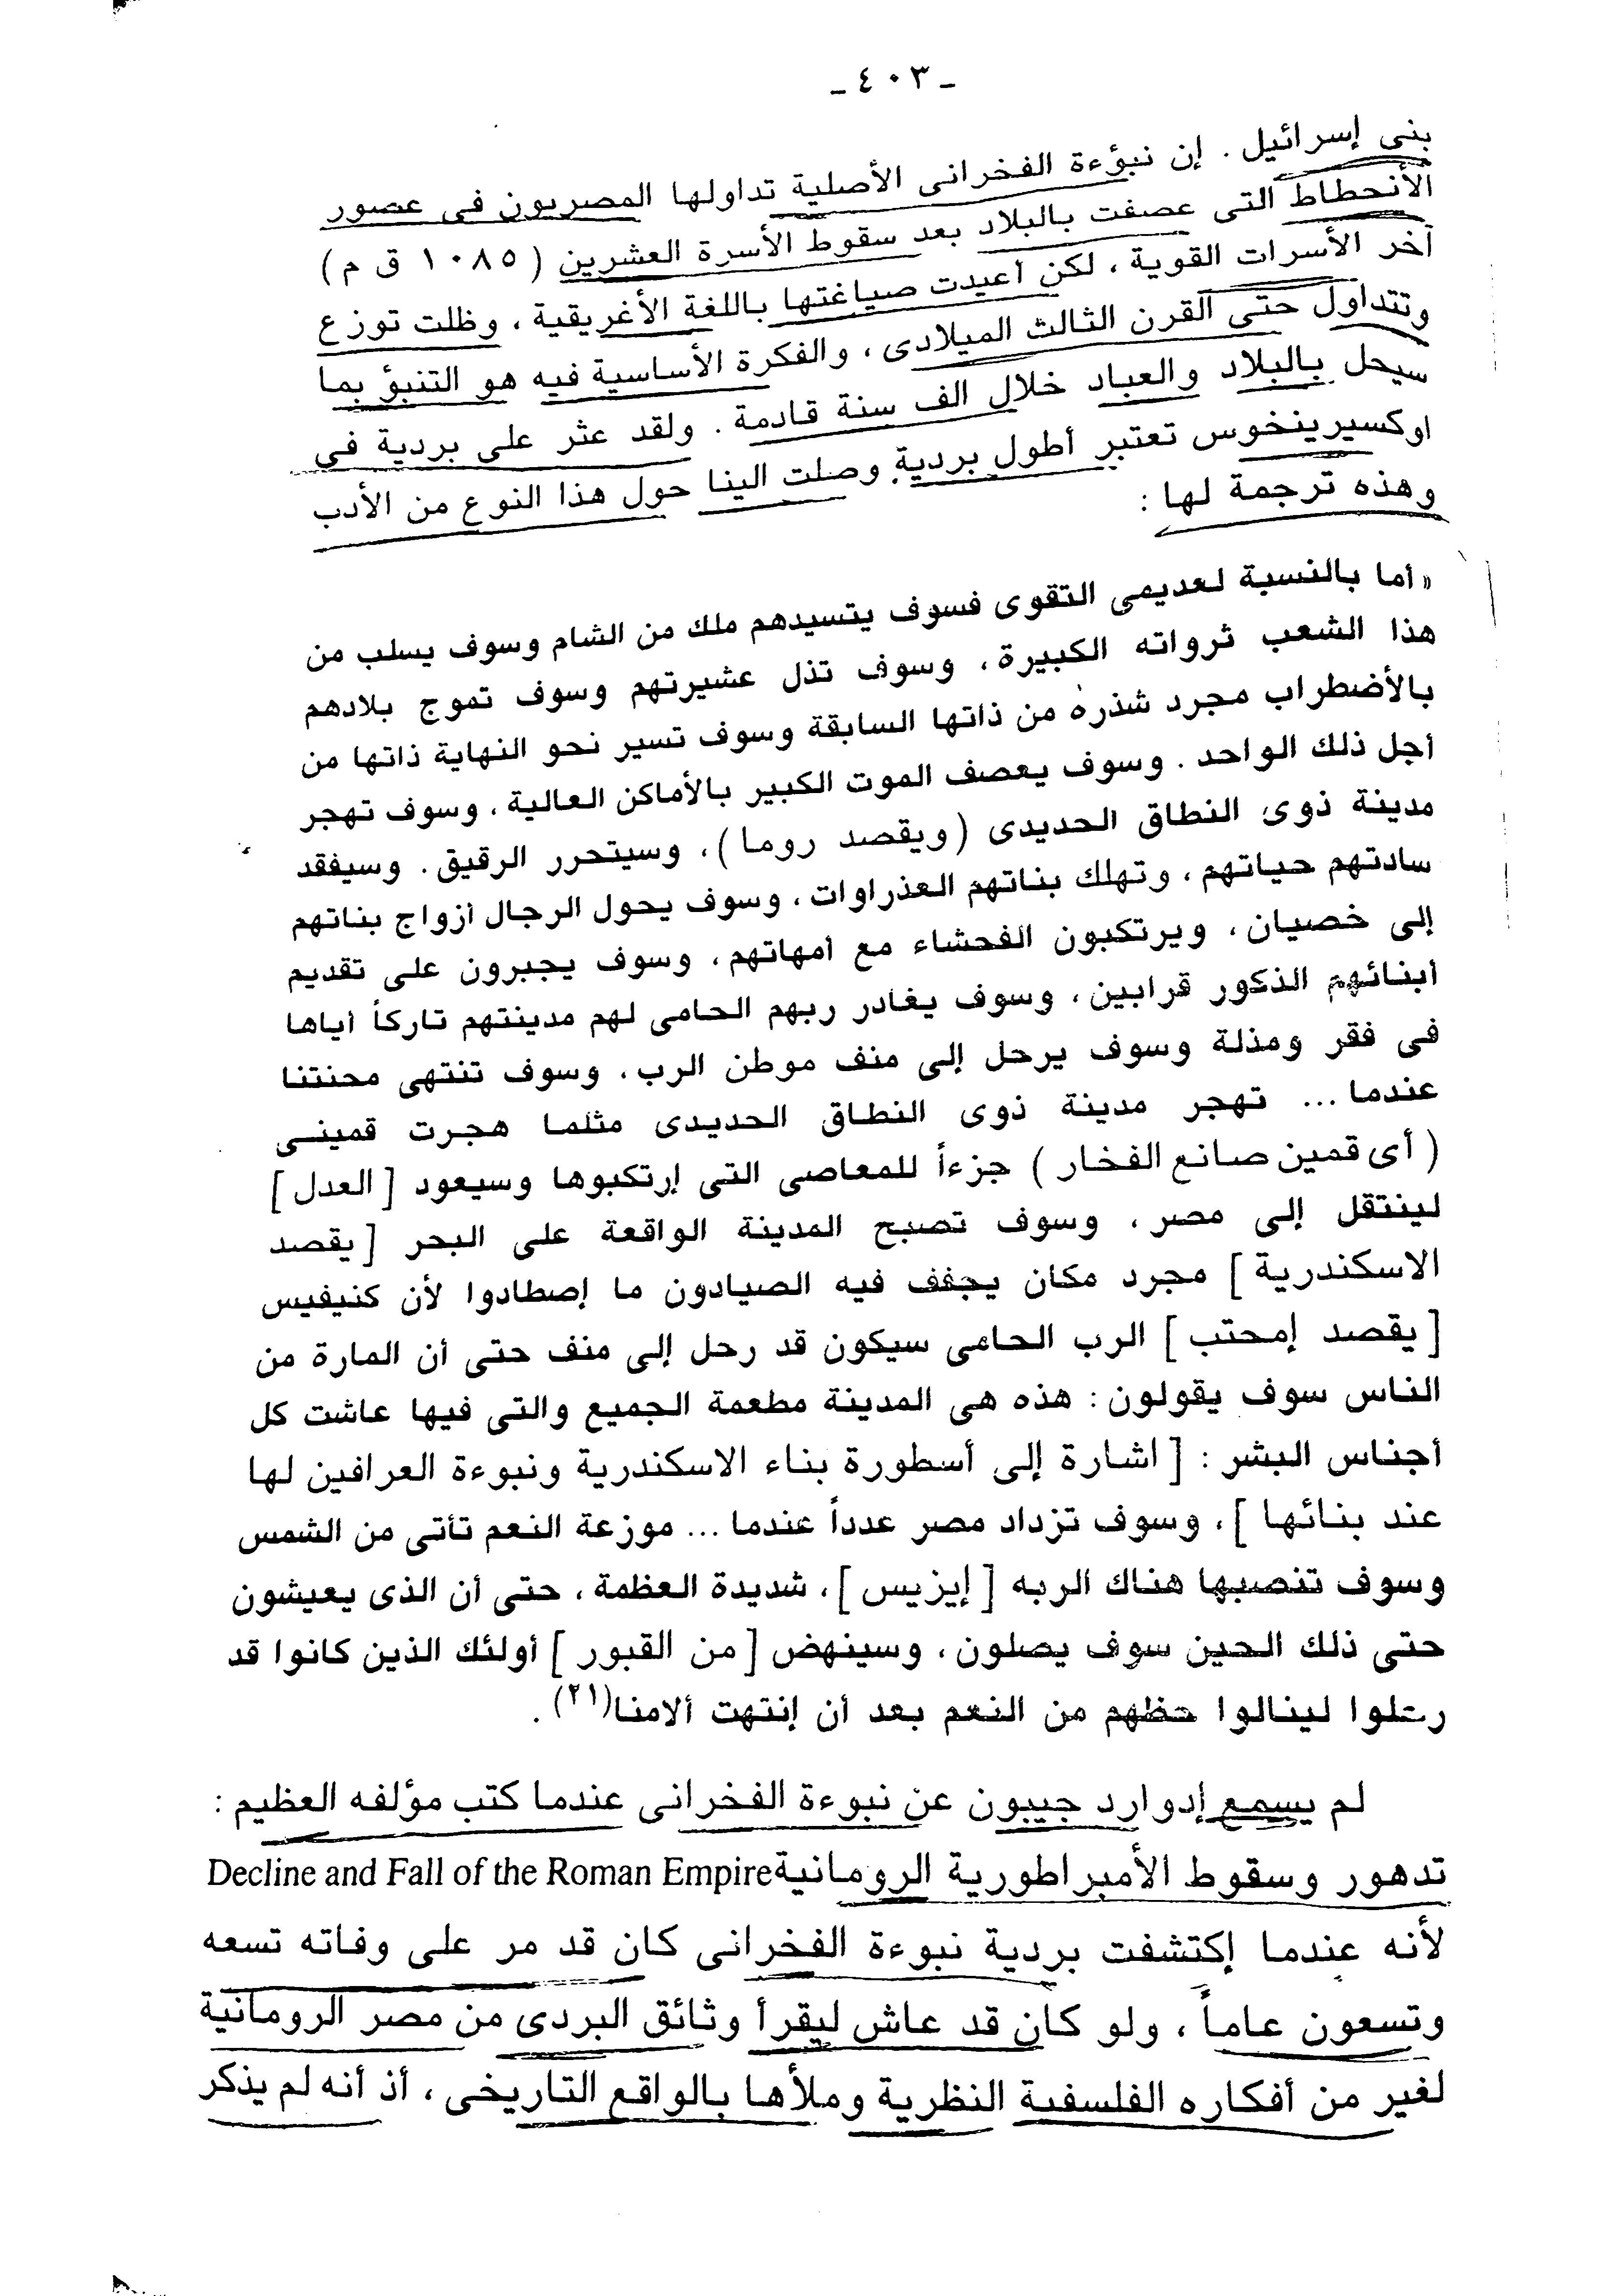 ـ ٤٠٣ ـ
بنى إسرائيل . إن نبؤءة الفخرانى الأصلية تداولها المصريون فى عصور
الأنحطاط التى عصفت بالبلاد بعد سقوط الأسرة العشرين ( ١٠٨٥ ق م )
آخر الأسرات القوية ، لكن أعيدت صياغتها باللغة الأغريقية ، وظلت توزع
وتتداول حتى القرن الثالث الميلادى ، والفكرة الأساسية فيه هو التنبؤ بما
سيحل بالبلاد والعباد خلال الف سنة قادمة . ولقد عثر على بردية فى
اوكسيرينخوس تعتبر أطول بردية وصلت الينا حول هذا النوع من الأدب
وهذه ترجمة لها :
« أما بالنسبة لعديمى التقوى فسوف يتسيدهم ملك من الشام وسوف يسلب من
هذا الشعب ثرواته الكبيرة ، وسوف تذل عشيرتهم وسوف تموج بلادهم
بالأضطراب مجرد شذره من ذاتها السابقة وسوف تسير نحو النهاية ذاتها من
أجل ذلك الواحد . وسوف يعصف الموت الكبير بالأماكن العالية ، وسوف تهجر
مدينة ذوى النطاق الحديدى ( ويقصد روما ) ، وسيتحرر الرقيق . وسيفقد
سادتهم حياتهم ، وتهلك بناتهم العذراوات ، وسوف يحول الرجال أزواج بناتهم
إلى خصيان ، ويرتكبون الفحشاء مع أمهاتهم ، وسوف يجبرون على تقديم
أبنائهم الذكور قرابين ، وسوف يغادر ربهم الحامى لهم مدينتهم تاركاً أياها
فى فقر ومذلة وسوف يرحل إلى منف موطن الرب ، وسوف تنتهى محنتنا
عندما ... تهجر مدينة ذوى النطاق الحديدى مثلما هجرت قمينى
( أى قمين صانع الفخار ) جزءاً للمعاصى التى إرتكبوها وسيعود [ العدل ]
لينتقل إلى مصر ، وسوف تصبح المدينة الواقعة على البحر [ يقصد
الاسكندرية ] مجرد مكان يجفف فيه الصيادون ما إصطادوا لأن كنيفيس
[ يقصد إمحتب ] الرب الحامى سيكون قد رحل إلى منف حتى أن المارة من
الناس سوف يقولون : هذه هى المدينة مطعمة الجميع والتى فيها عاشت كل
أجناس البشر : [ اشارة إلى أسطورة بناء الاسكندرية ونبوءة العرافين لها
عند بنائها ] ، وسوف تزداد مصر عدداً عندما ... موزعة النعم تأتى من الشمس
وسوف تنصبها هناك الربه [ إيزيس ] ، شديدة العظمة ، حتى أن الذى يعيشون
حتى ذلك الحين سوف يصلون ، وسينهض [ من القبور ] أولئك الذين كانوا قد
رحلوا لينالوا حظهم من النعم بعد أن إنتهت ألامنا(٢١) .
لم يسمع إدوارد جيبون عن نبوءة الفخرانى عندما كتب مؤلفه العظيم :
تدهور وسقوط الأمبراطورية الرومانية Decline and Fall of the Roman Empire
لأنه عندما إكتشفت بردية نبوءة الفخرانى كان قد مر على وفاته تسعه
وتسعون عاماً ، ولو كان قد عاش ليقرأ وثائق البردى من مصر الرومانية
لغير من أفكاره الفلسفية النظرية وملأها بالواقع التاريخى ، أذ أنه لم يذكر